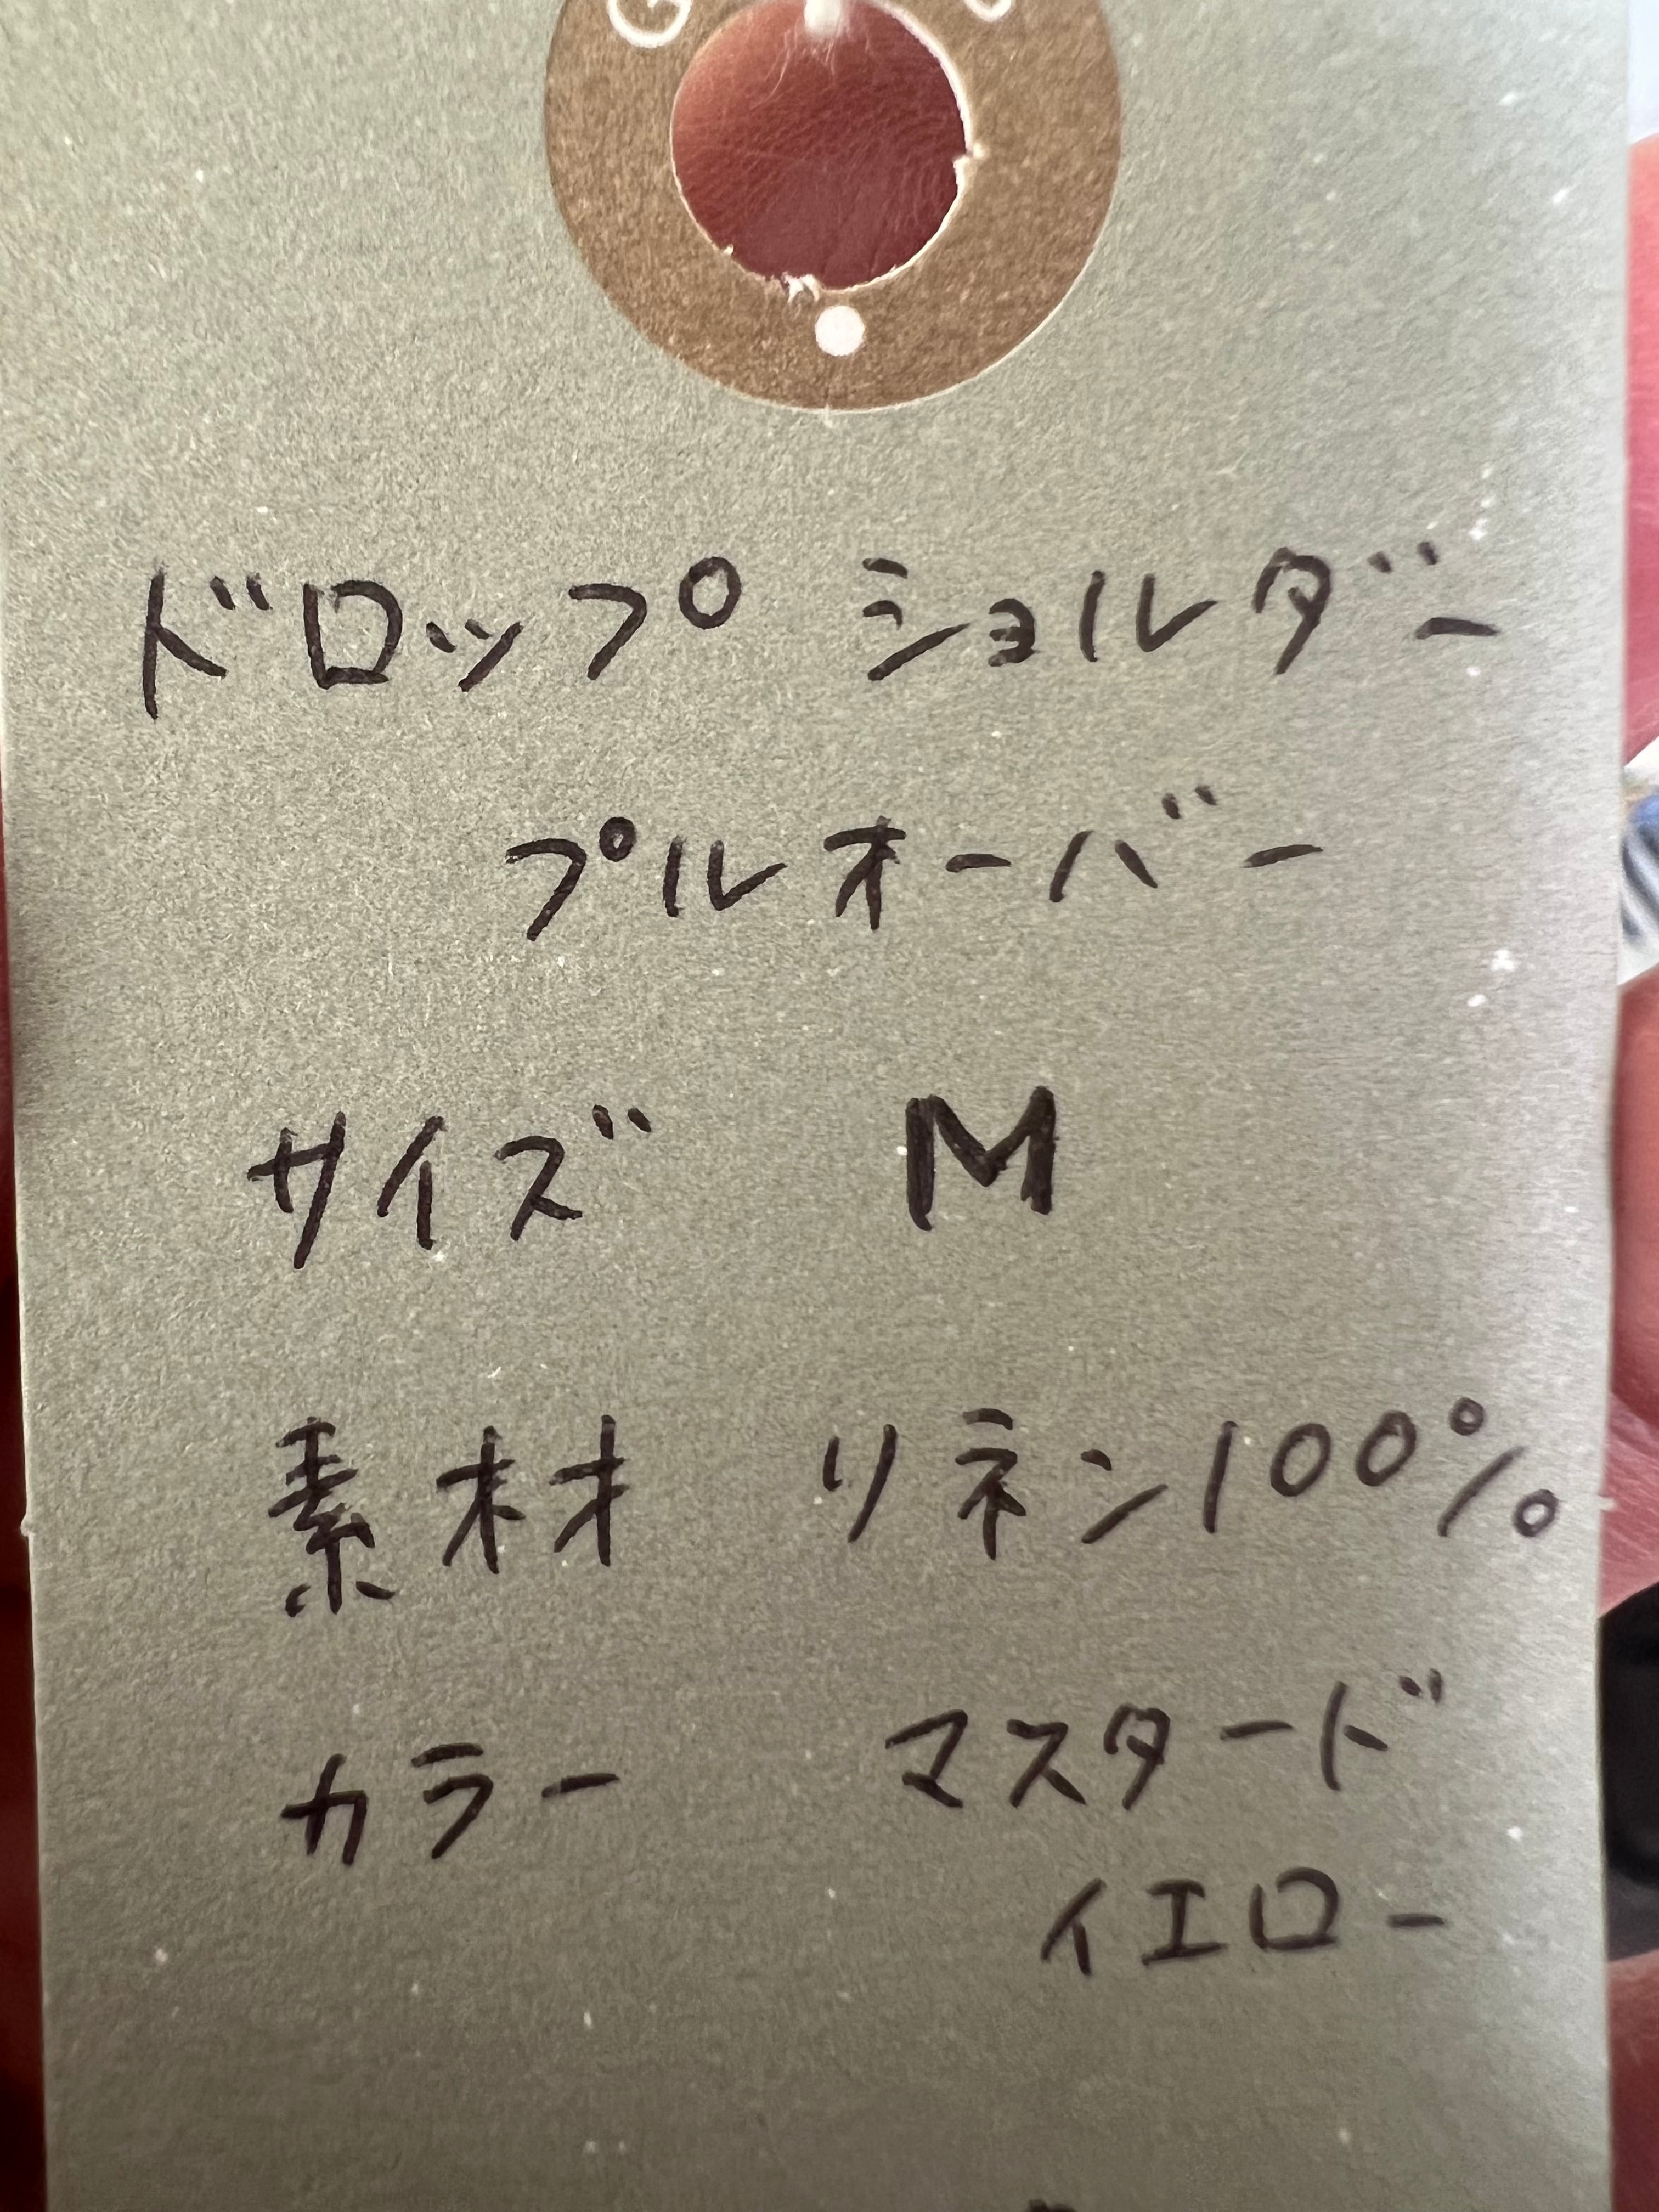 ドロップ ショルダー
プルオーバー
サイズ M
素材 リネン100%
カラー マスタード
イエロー